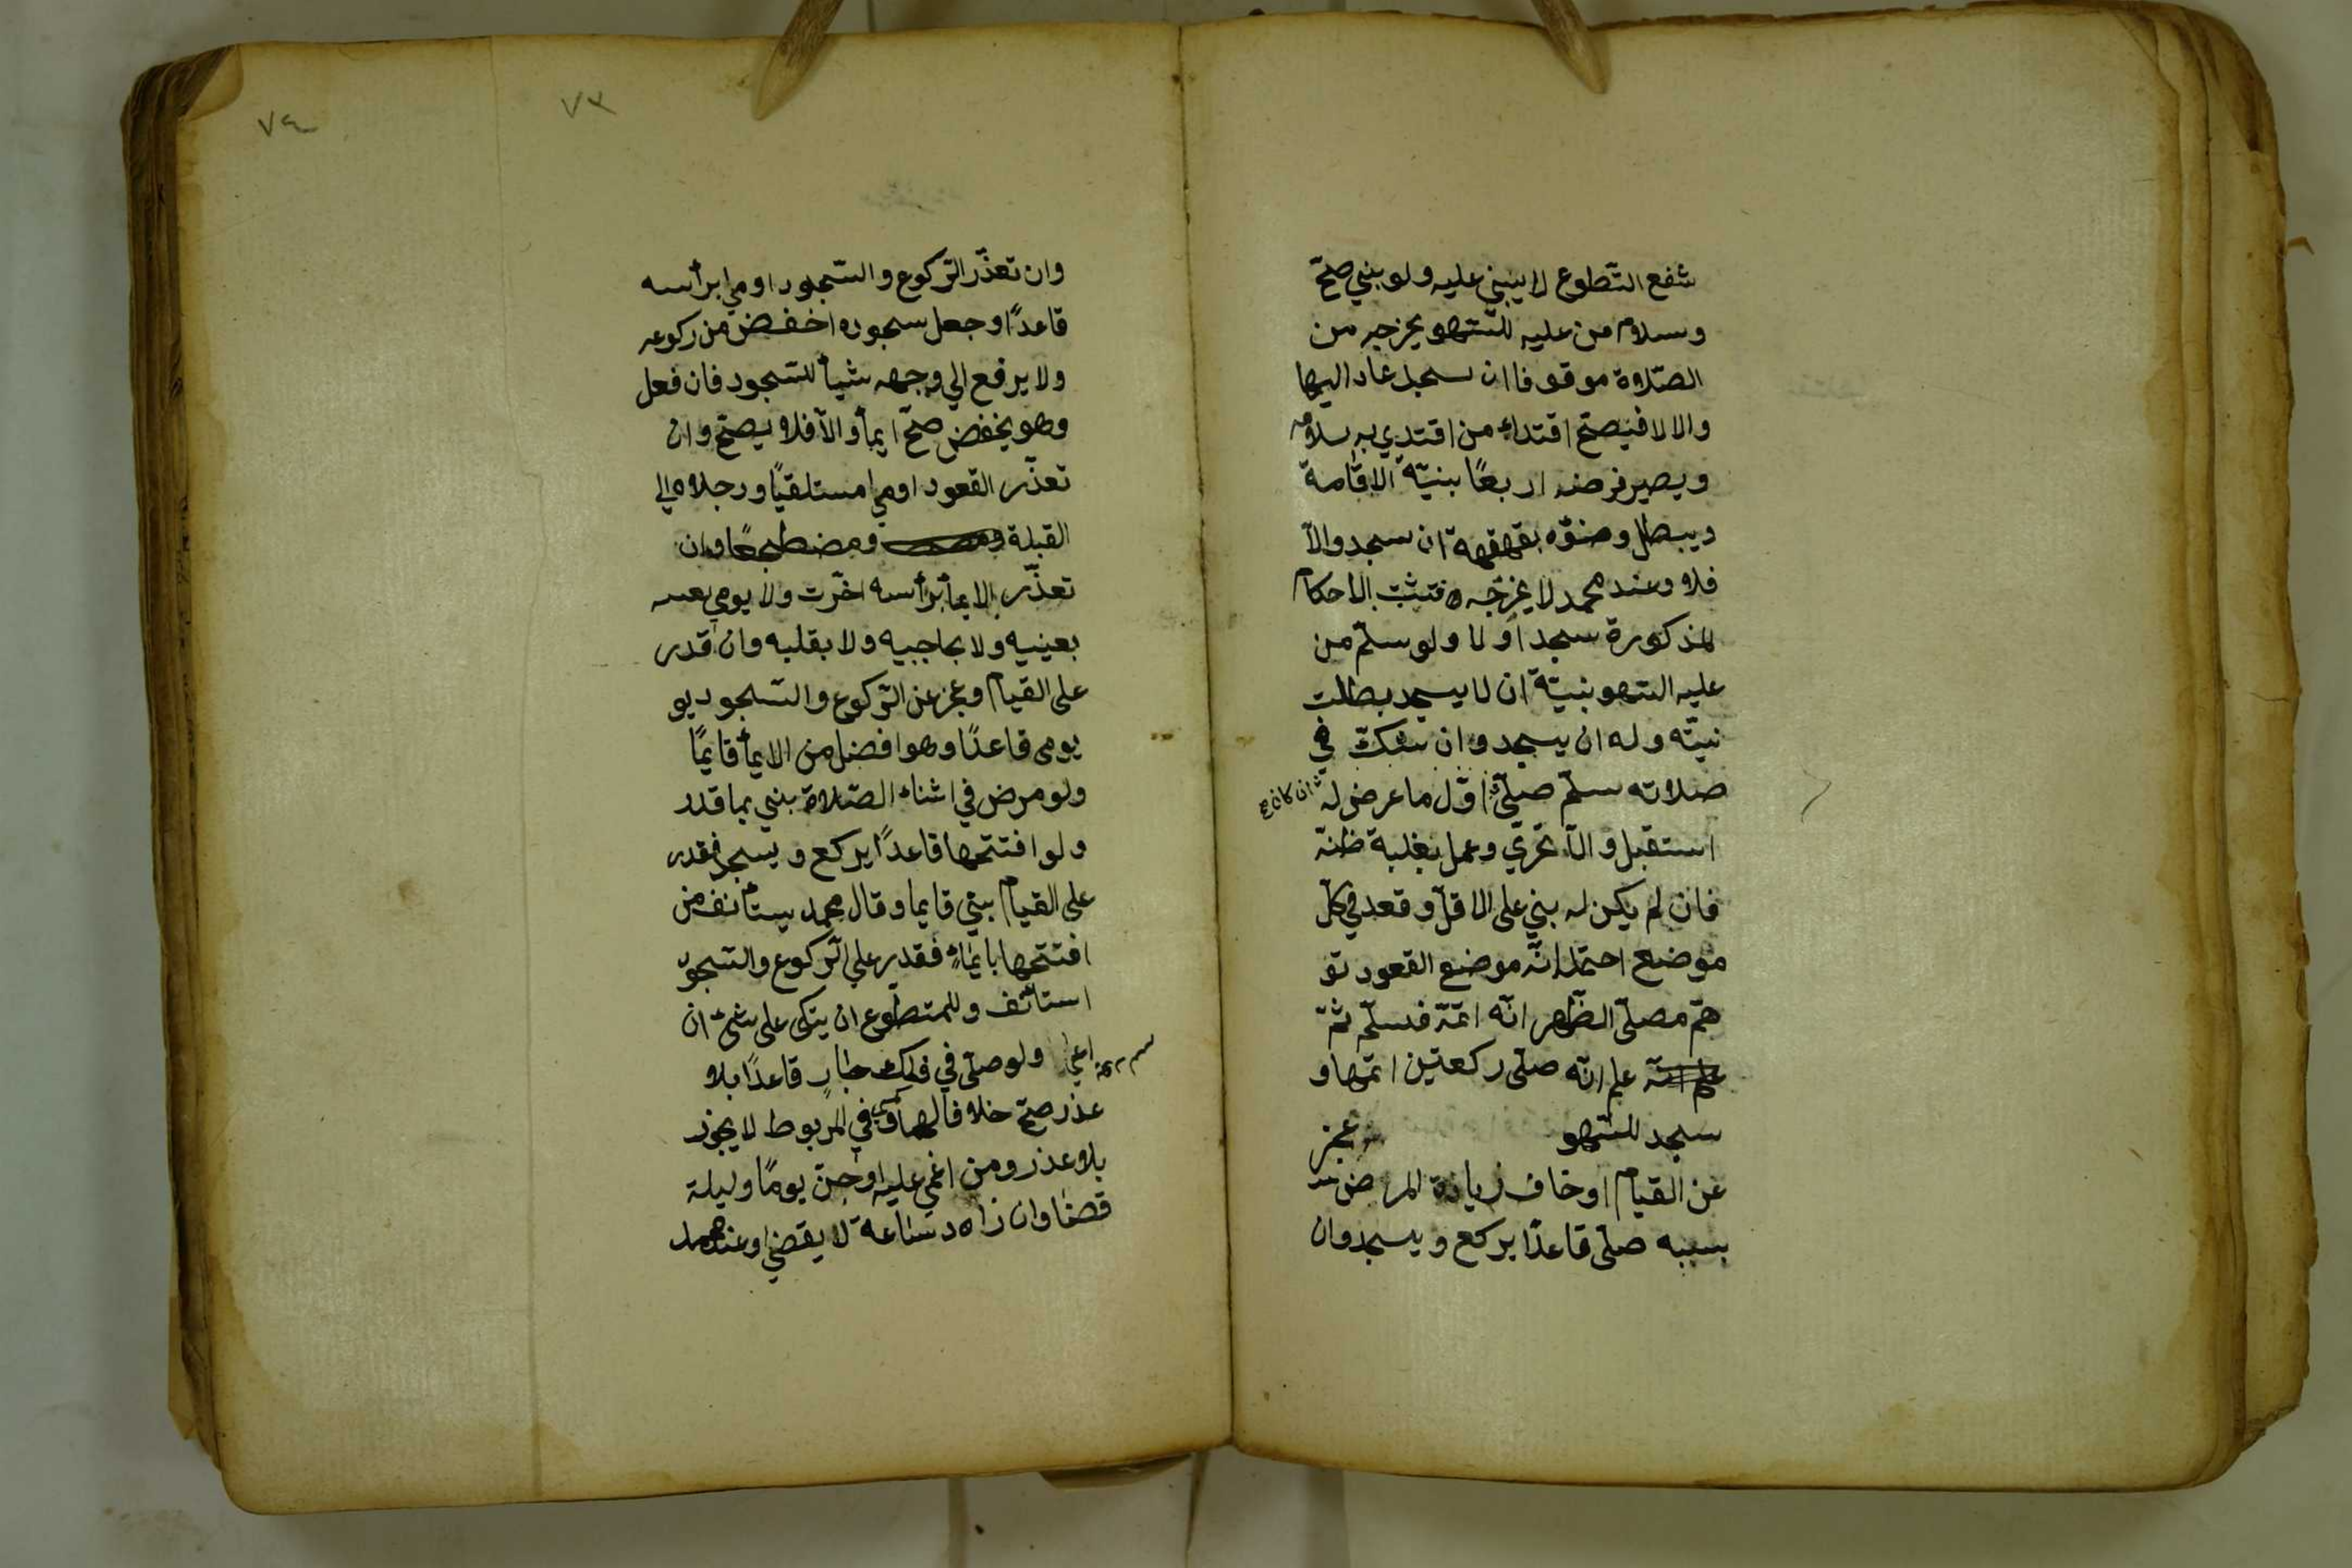 شفع التّطوع لا يبني عليه ولو بني صحّ
وسلام من عليه للسّهو يخرجه من
الصّلاوة موقوفا ان سجد عاد اليها
والا لا فيصحّ اقتداء من اقتدي به سلامه
ويصير فرضه اربعًا بنيّة الاقامة
ويبطل وضؤه بقهقهة ان سجد والّا
فلا وعند محمد لا يخرجه فتثبت الاحكام
المذكورة سجد او لا ولو سلّم من
عليه السّهو بنيّة ان لا يسجد بطلت
نيّته وله ان يسجد وان شكّ في
صلاته سلّم صلّي اوّل ما عرض له ان كان
استقبل والّا تحرّي وعمل بغلبة ظنّه
فان لم يكن له بني علي الاقلّ وقعد في كلّ
موضع احتمل انّه موضع القعود تو
هّم مصلّي الظّهر انّه اتمّه فسلّم ثمّ
علم انّه صلّي ركعتين اتمّها و
سجد للسّهو عجز
عن القيام او خاف زيادة المرض
بسببه صلّي قاعدًا يركع ويسجد وان
٧٣
٧٤
وان تعذّر الرّكوع والسّجود اومي برأسه
قاعدًا وجعل سجوده اخفض من ركوعه
ولا يرفع الي وجهه شيأ للسّجود فان فعل
وهو يخفض صحّ ايمأ والّا فلا يصحّ وان
تعذّر القعود اومي مستلقيًا ورجلاه الي
القبلة ومضطجعًا وان
تعذّر الايمأ برأسه اخّرت ولا يومي
بعينيه ولا بحاجبيه ولا بقلبه وان قدر
علي القيام وعجز عن الرّكوع والسّجود يو
يومي قاعدًا وهو افضل من الايمأ قايمًا
ولو مرض في اثناء الصّلاة بني بما قدر
ولو افتتحها قاعدًا يركع ويسجد فقدر
علي القيام بني قايما وقال محمد يستأنف من
افتتحها بايمّاء فقدر علي الرّكوع والسّجود
استأنف وللمتطوع ان يتكي علي شئ ان
اعي ولو صلّي في فلك جار قاعدًا بلا
عذر صحّ خلافا لهما وفي المربوط لا يجوز
بلا عذر ومن اغمي عليه او جنّ يومًا وليلة
قضا وان زاد ساعة لا يقضي وعند محمد